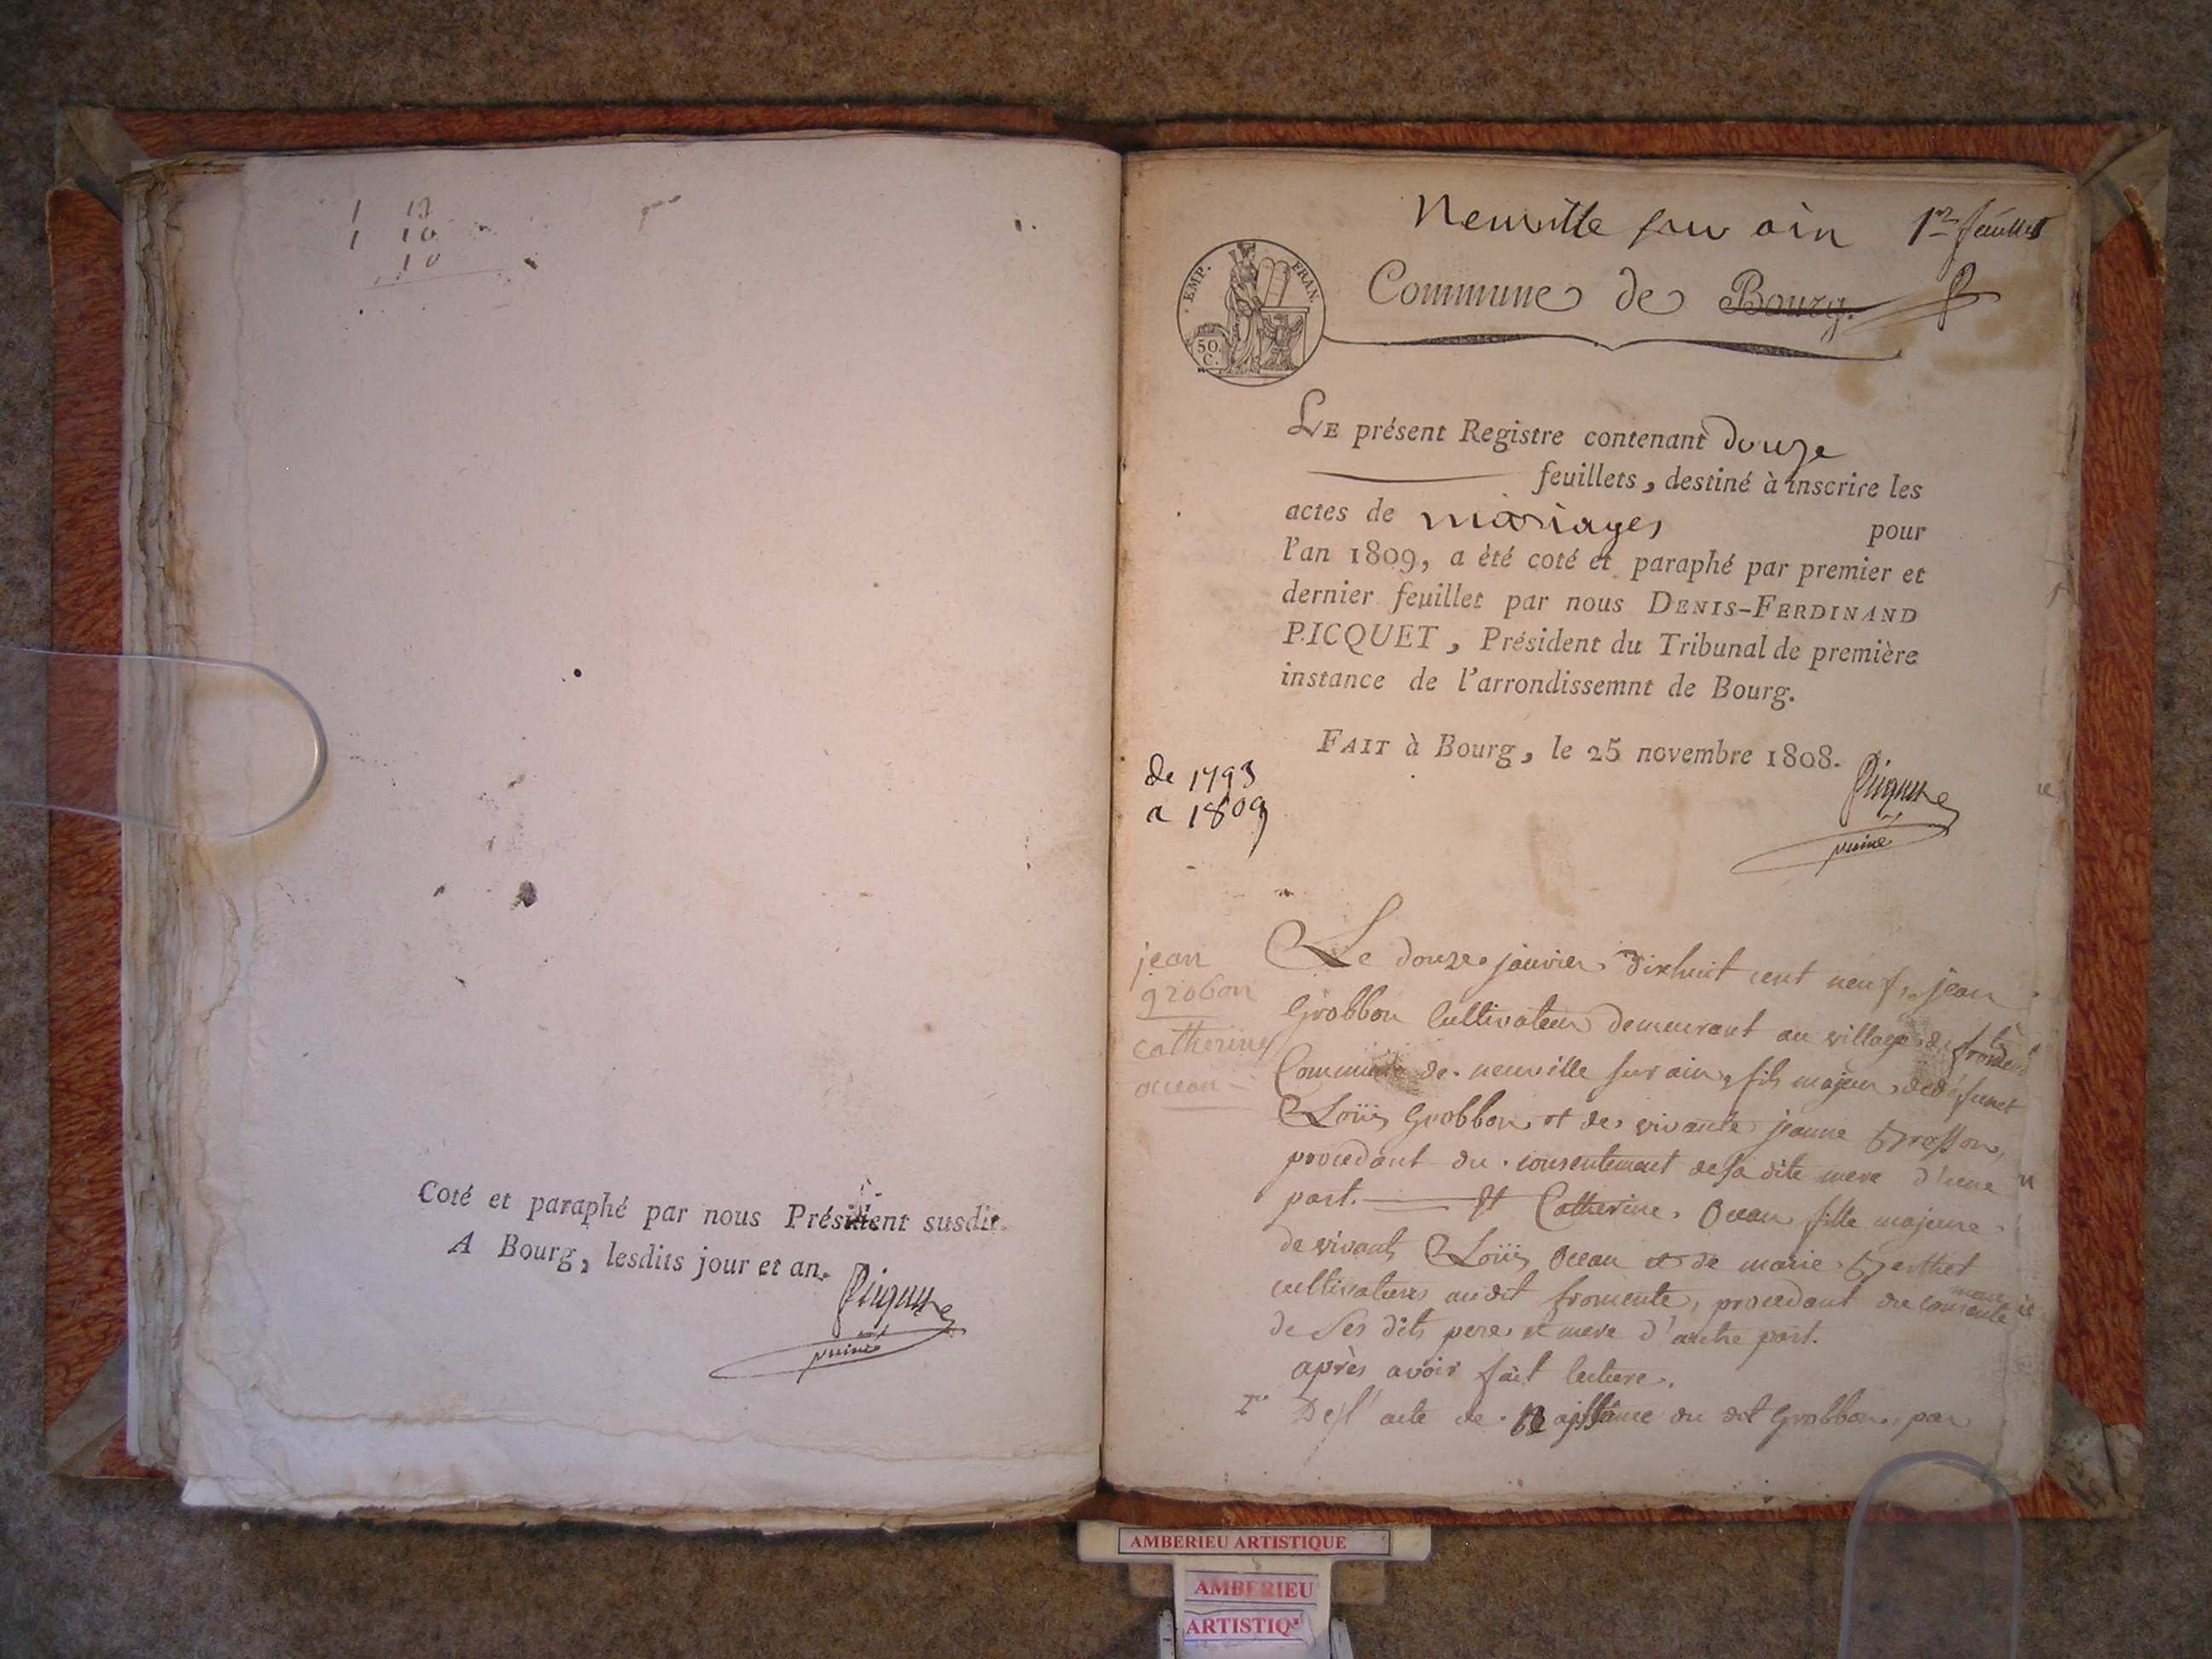 1 13
1 10
10
Coté et paraphé par nous Président susdit.
A Bourg, lesdits jour et an.
Picquet
puiné
Neuville sur ain 1er feuillet
EMP. FRAN.
50.
C.
Commune de Bourg.
LE présent Registre contenant douze
feuillets, destiné à inscrire les
actes de mariages pour
l'an 1809, a été coté et paraphé par premier et
dernier feuillet par nous DENIS-FERDINAND
PICQUET, Président du Tribunal de première
instance de l'arrondissemnt de Bourg.
FAIT à Bourg, le 25 novembre 1808.
Picquet
puiné
de 1793
a 1809
jean
grobon
catherine
ocean
Le douze janvier dixhuit cent neuf, jean
Grobbon Cultivateur demeurant au village de fromente
Commune de neuville sur ain, fils majeur de défunet
Loüis Grobbon et de vivante jeanne Bresson,
procedant du consentement de sa dite mere d'une
part. Et Catherine Ocean fille majeure
de vivants Loüis Ocean et de marie Berthet
cultivateurs audit fromente, procedant du consentement
de ses dits pere et mere d'autre part.
après avoir fait lecture.
1° De l'acte de Naissance du dit Grobbon, par
AMBERIEU ARTISTIQUE
AMBERIEU
ARTISTIQ